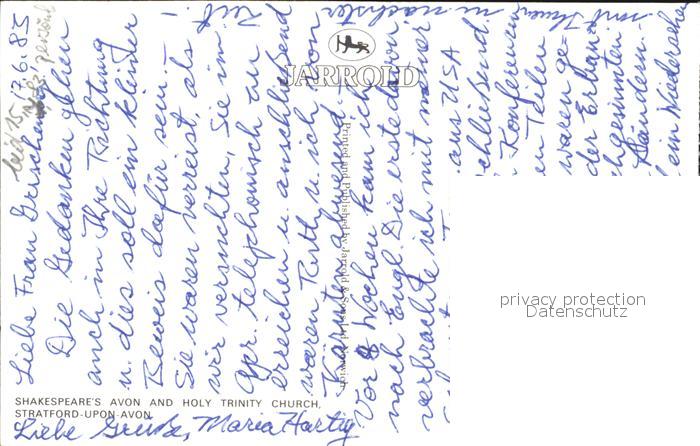 17.6.85
Liebe Frau Grischen
Die Gedanken gehen
auch in Ihre Richtung
u. dies soll ein kleiner
Beweis dafür sein. – !
Sie waren verreist, als
wir versuchten, Sie im
Apr. telephonisch zu
erreichen u. anschließend
waren Ruth u. ich von
Kärnten abwesend. –
Vor 8 Wochen kam ich
nach Engl. Die erste davon
verbrachte ich mit meiner
aus USA
schließend
Konferenz
en Teilen
waren ge-
der Erhan
chgesinnten
Ländern. –
ein Wiedersehen
mit Ihnen in nächster
Zeit.
Liebe Grüße, Maria Hartig
JARROLD
Printed and Published by Jarrold & Sons Ltd, Norwich
SHAKESPEARE'S AVON AND HOLY TRINITY CHURCH,
STRATFORD-UPON-AVON
privacy protection
Datenschutz